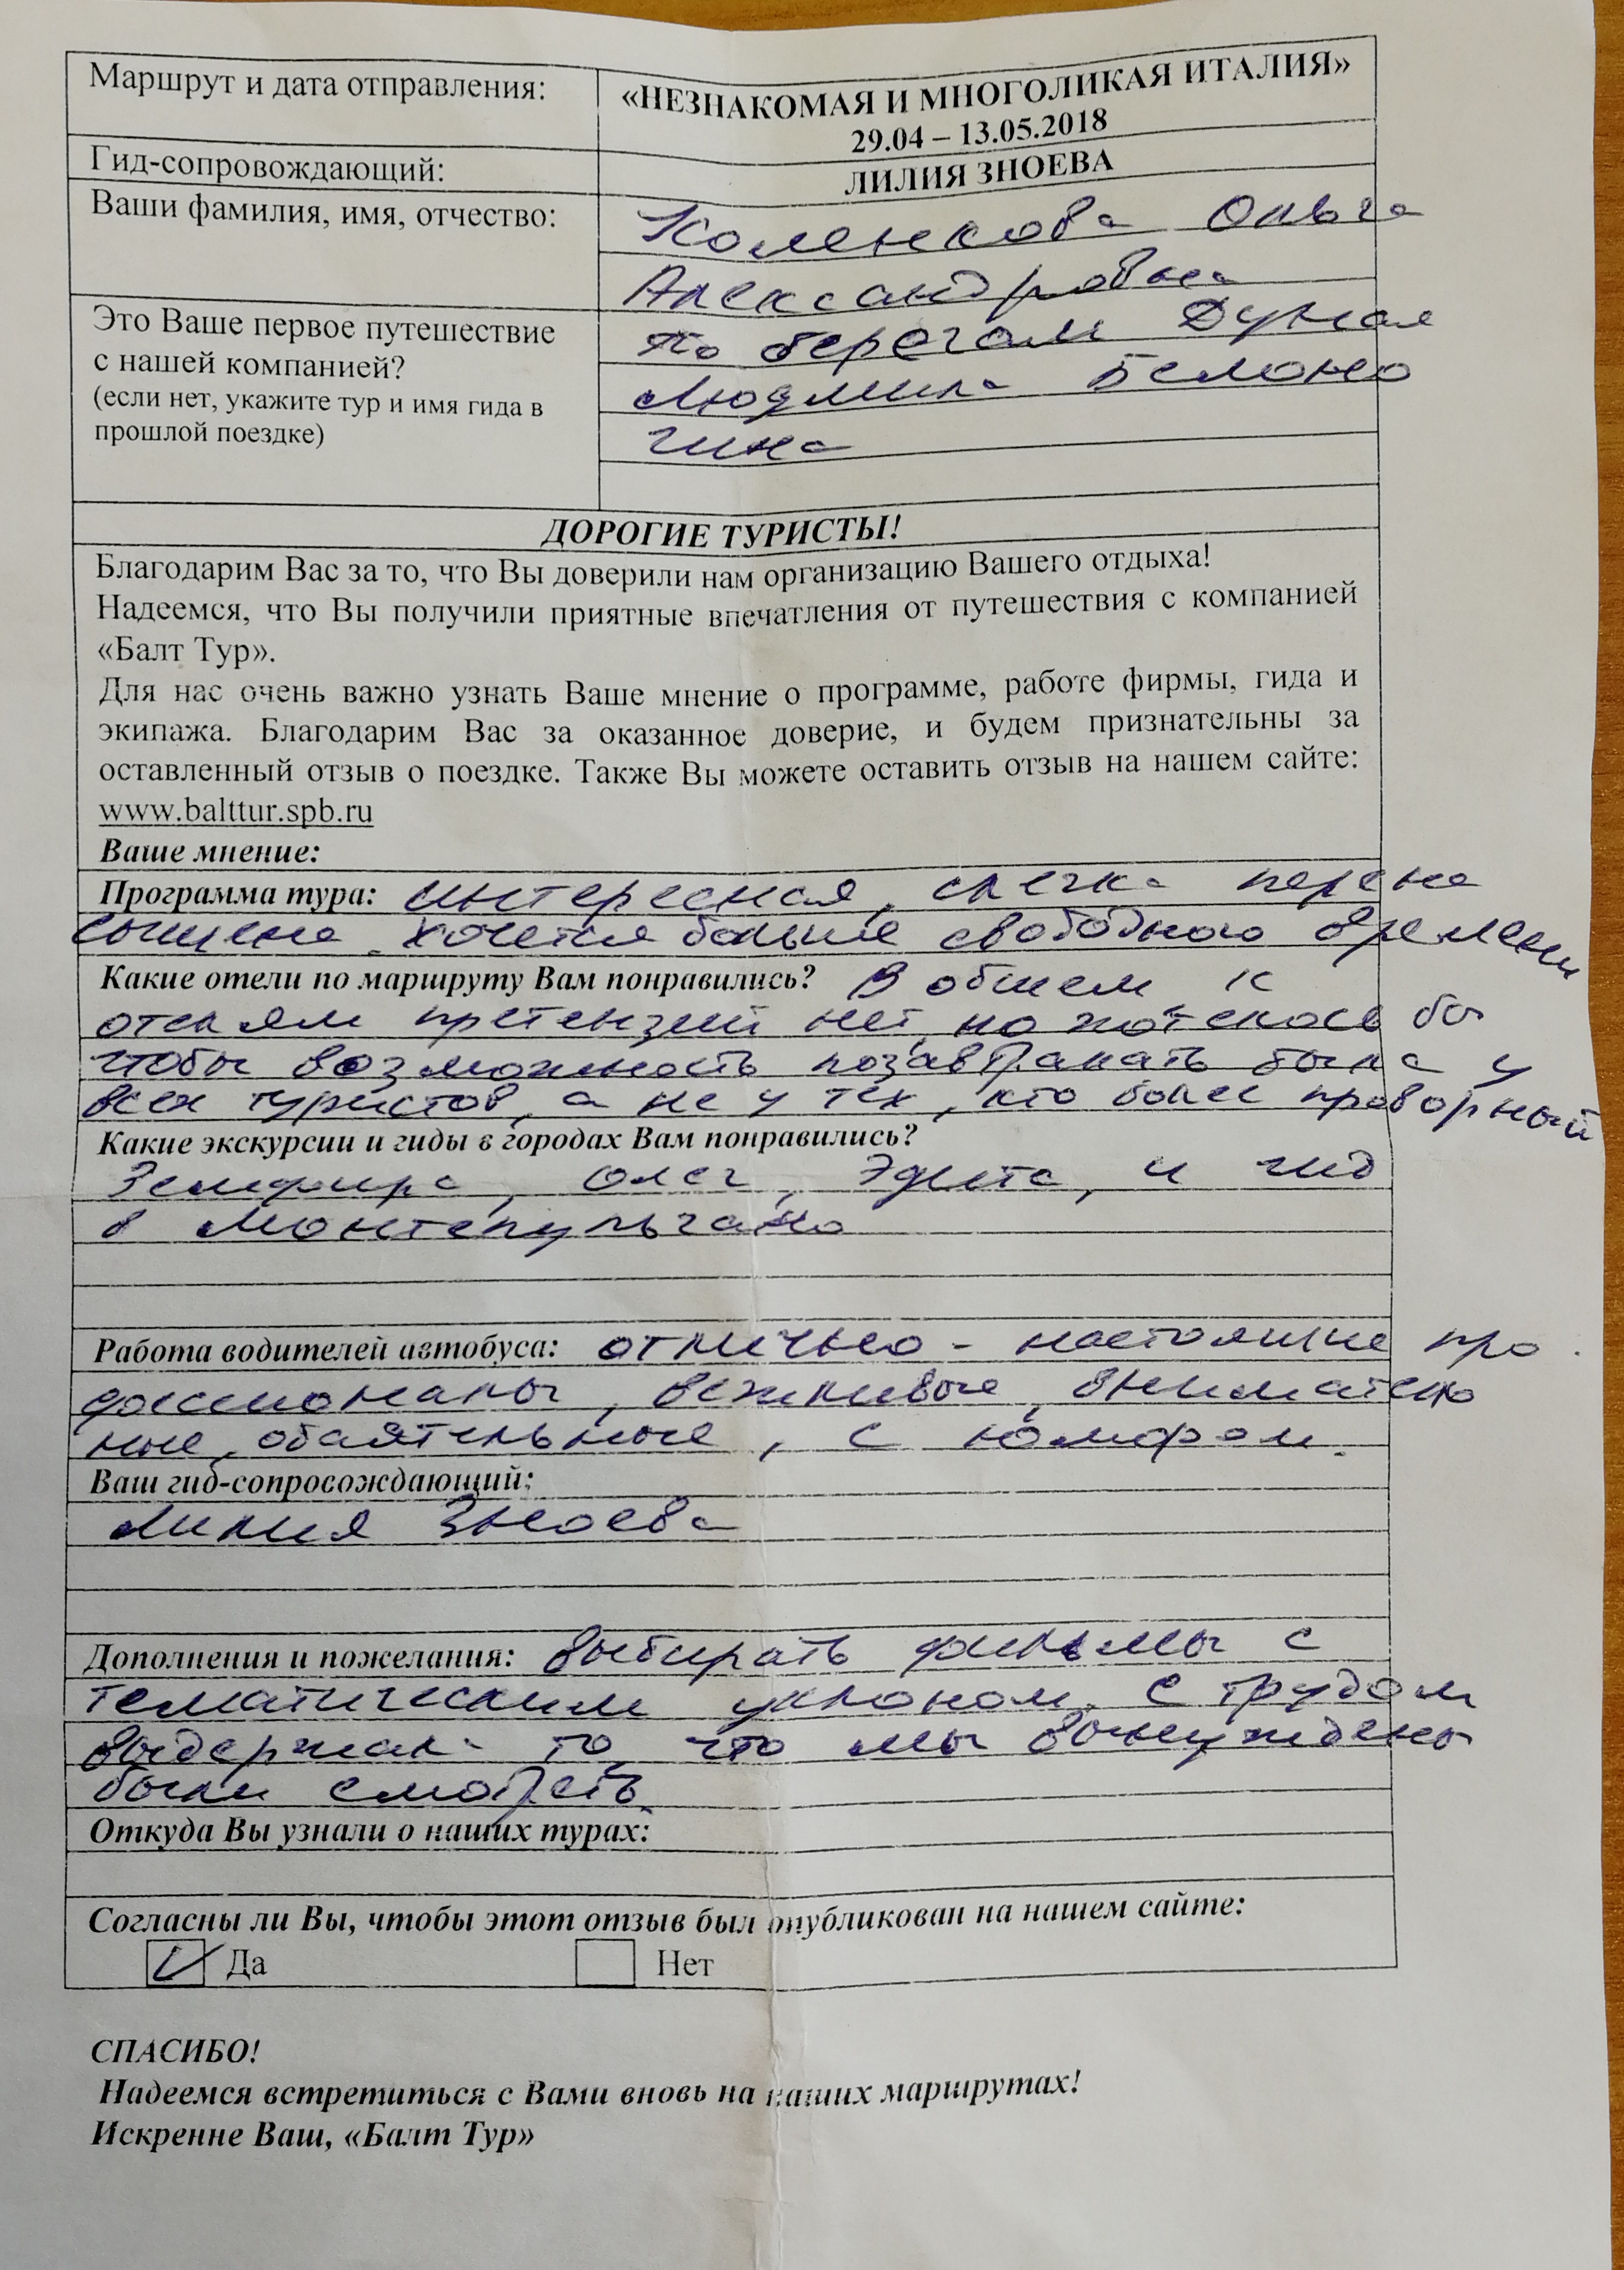 Маршрут и дата отправления:
«НЕЗНАКОМАЯ И МНОГОЛИКАЯ ИТАЛИЯ»
29.04 – 13.05.2018
Гид-сопровождающий:
ЛИЛИЯ ЗНОЕВА
Ваши фамилия, имя, отчество:
Коленкова Ольга
Александровна
Это Ваше первое путешествие
с нашей компанией?
(если нет, укажите тур и имя гида в
прошлой поездке)
По берегам Дуная
Людмила Беломо
гина
ДОРОГИЕ ТУРИСТЫ!
Благодарим Вас за то, что Вы доверили нам организацию Вашего отдыха!
Надеемся, что Вы получили приятные впечатления от путешествия с компанией
«Балт Тур».
Для нас очень важно узнать Ваше мнение о программе, работе фирмы, гида и
экипажа. Благодарим Вас за оказанное доверие, и будем признательны за
оставленный отзыв о поездке. Также Вы можете оставить отзыв на нашем сайте:
www.balttur.spb.ru
Ваше мнение:
Программа тура: интересная, слегка перена
сыщена. хочется больше свободного времени
Какие отели по маршруту Вам понравились? В общем к
отелям претензий нет, но хотелось бы
чтобы возможность позавтракать была у
всех туристов, а не у тех, кто более проворный
Какие экскурсии и гиды в городах Вам понравились?
Земфира, Олег, Эдита, и гид
в Монтепульчано
Работа водителей автобуса: отлично - настоящие про
фессионалы, вежливые, вниматель
ные, обаятельные, с юмором.
Ваш гид-сопровождающий:
Лилия Зноева
Дополнения и пожелания: выбирать фильмы с
тематическим уклоном. С трудом
выдержала то, что мы вынуждены
были смотреть.
Откуда Вы узнали о наших турах:
Согласны ли Вы, чтобы этот отзыв был опубликован на нашем сайте:
Да Нет
СПАСИБО!
Надеемся встретиться с Вами вновь на наших маршрутах!
Искренне Ваш, «Балт Тур»